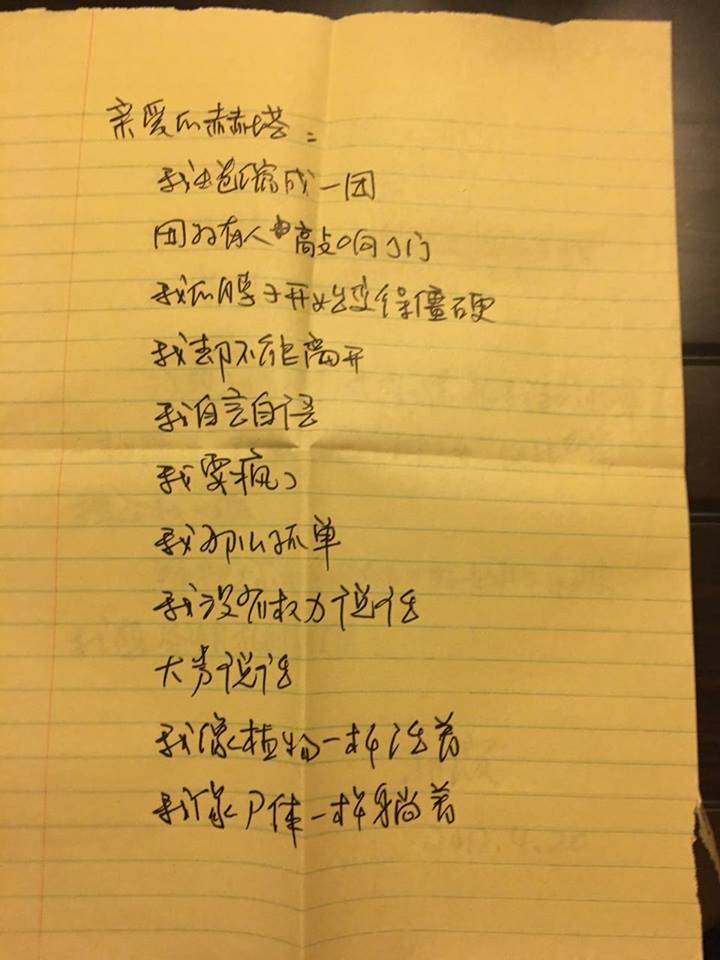 亲爱的赫塔：
我蜷缩成一团
因为有人敲响了门
我的脖子开始变得僵硬
我却不能离开
我自言自语
我要疯了
我那么孤单
我没有权力说话
大声说话
我像植物一样活着
我像尸体一样躺着